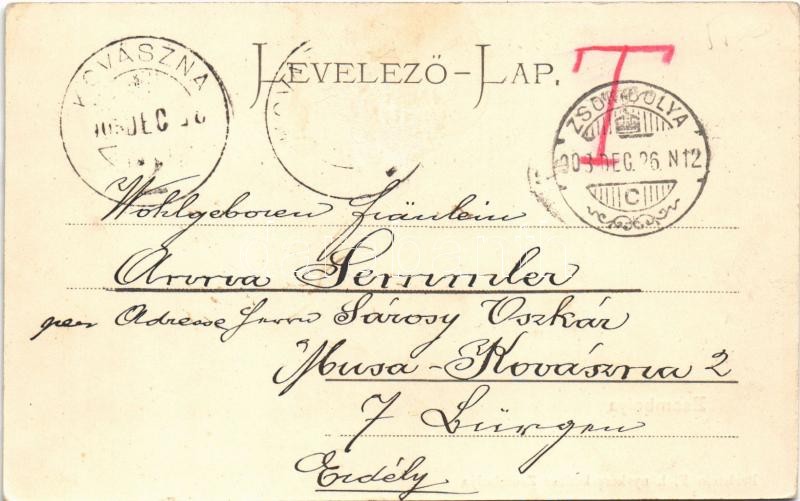 LEVELEZŐ-LAP.
T
KOVÁSZNA
DEC
ZSOMBOLYA
903 DEC. 26. N12
C
Wohlgeboren Fräulein
Semmler
per Adresse Herrn Sárosy Oszkár
Kovászna
7 Bürgen
Erdély